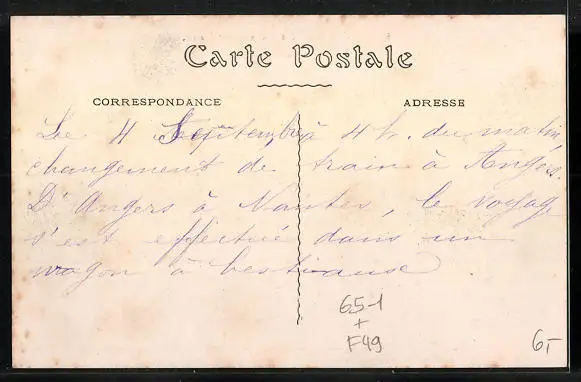 Carte Postale
CORRESPONDANCE
ADRESSE
Le 4 Septembre à 4 h. du matin
changement de train à Angers.
D'Angers à Nantes, le voyage
s'est effectué dans un
wagon à bestiaux
651
+
F49
6,-